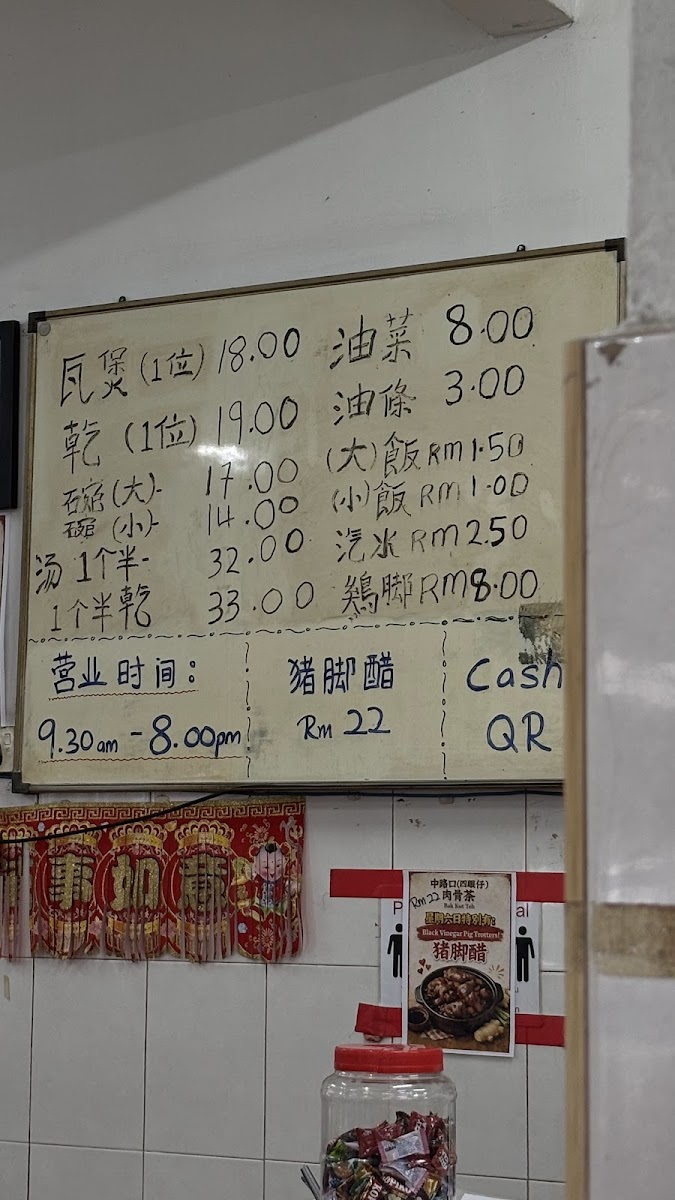 瓦煲(1位) 18.00
乾 (1位) 19.00
碗(大)- 17.00
碗(小)- 14.00
汤 1个半- 32.00
1个半乾 33.00
油菜 8.00
油條 3.00
(大)飯 RM1.50
(小)飯 RM1.00
汽水 RM2.50
鷄脚 RM8.00
营业时间:
9.30am - 8.00pm
猪脚醋
Rm 22
Cash
QR
事如意
中路口(四眼仔)
Rm 22 肉骨茶
Bak Kut Teh
星期六日特别有:
Black Vinegar Pig Trotters!
猪脚醋